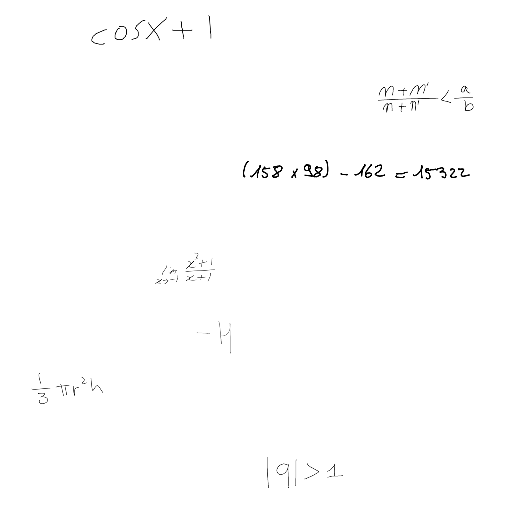 cosx + 1
\frac{m+m'}{n+n'} < \frac{a}{b}
(158 x 98) - 162 = 15322
\lim_{x \to -1} \frac{x^2+1}{x+1}
-H
\frac{1}{3} πr²h
|q| > 1